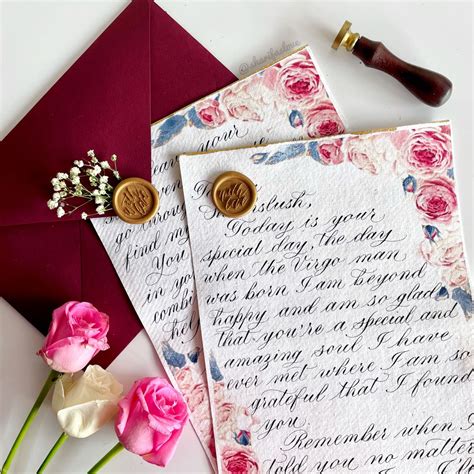 your
go
find
in
Today is your
special day, the day
when the Virgo man
was born I am beyond
happy and am so glad
that you're a special and
amazing soul I have
ever met where I am so
grateful that I found
you
Remember when I
told you no matter